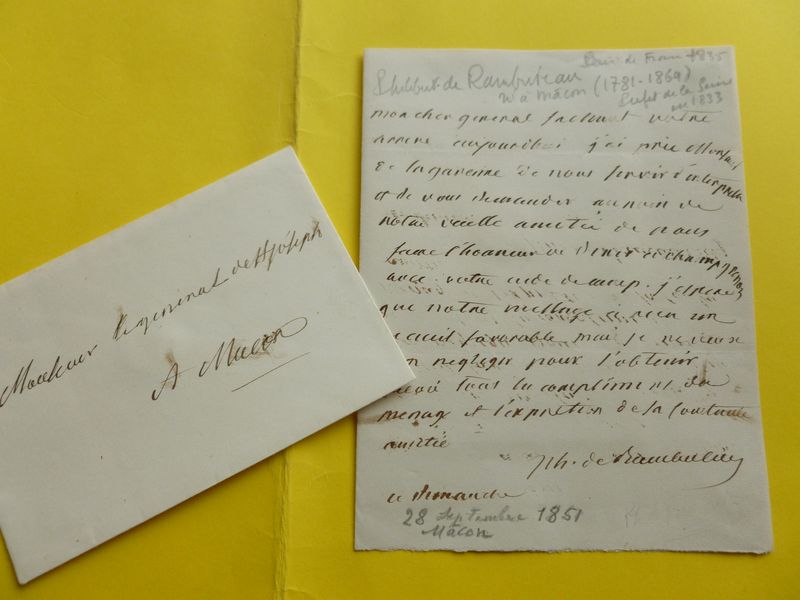 Pair de France 1835
Philibert de Rambuteau
né à Mâcon (1781-1869)
Préfet de la Seine
en 1833
mon cher general sachant votre
arrivee aujourdhui j'ai prié Monsieur
de la garenne de nous servir d'interprete
et de vous demander au nom de
notre vieille amitié de nous
faire l'honneur de diner a champgrenon
avec votre aide de camp. j'espere
que notre message a recu un
accueil favorable mais je ne veux
rien negliger pour l'obtenir
tous les compliments du
menage et l'expression de sa constante
amitié
Ph. de Rambuteau
ce dimanche
28 Septembre 1851
Mâcon
Monsieur le general de St joseph
A Macon